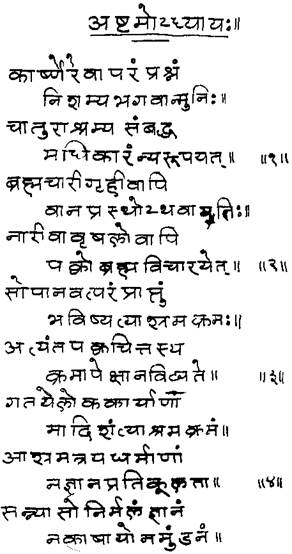 अष्टमोऽध्यायः॥
कार्ष्णेरेवापरंप्रश्नं
निशम्यभगवान्मुनिः॥
चातुराश्रम्य संबद्ध
मधिकारंन्यरूपयत्॥ ॥१॥
ब्रह्मचारीगृहीवापि
वानप्रस्थोऽथवा यतिः॥
नारीवावृषलोवापि
पक्वो ब्रह्मविचारयेत्॥ ॥२॥
सोपानवत्परंप्राप्तुं
भविष्यत्याश्रमक्रमः॥
अत्यंतपक्वचित्तस्य
क्रमापेक्षानविद्यते॥ ॥३॥
गतयेलोककार्याणां
मादिशंत्याश्रमक्रमं॥
आश्रमत्रयधर्माणां
नज्ञानप्रतिकूलता॥ ॥४॥
सन्न्यासोनिर्मलंज्ञानं
नकाषायोनमुंडनं॥